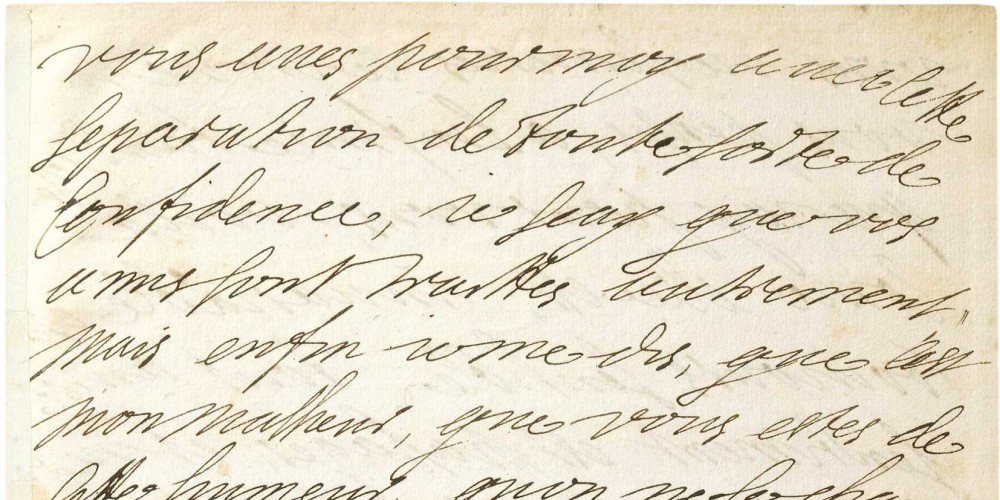 vous aues pour moy auec cette
separation de toute sorte de
Confidence, ie scay que vos
amis sont traittés autrement,
mais enfin ie me dis, que c'est
mon malheur, que vous estes de
cette humeur, qu'on ne se